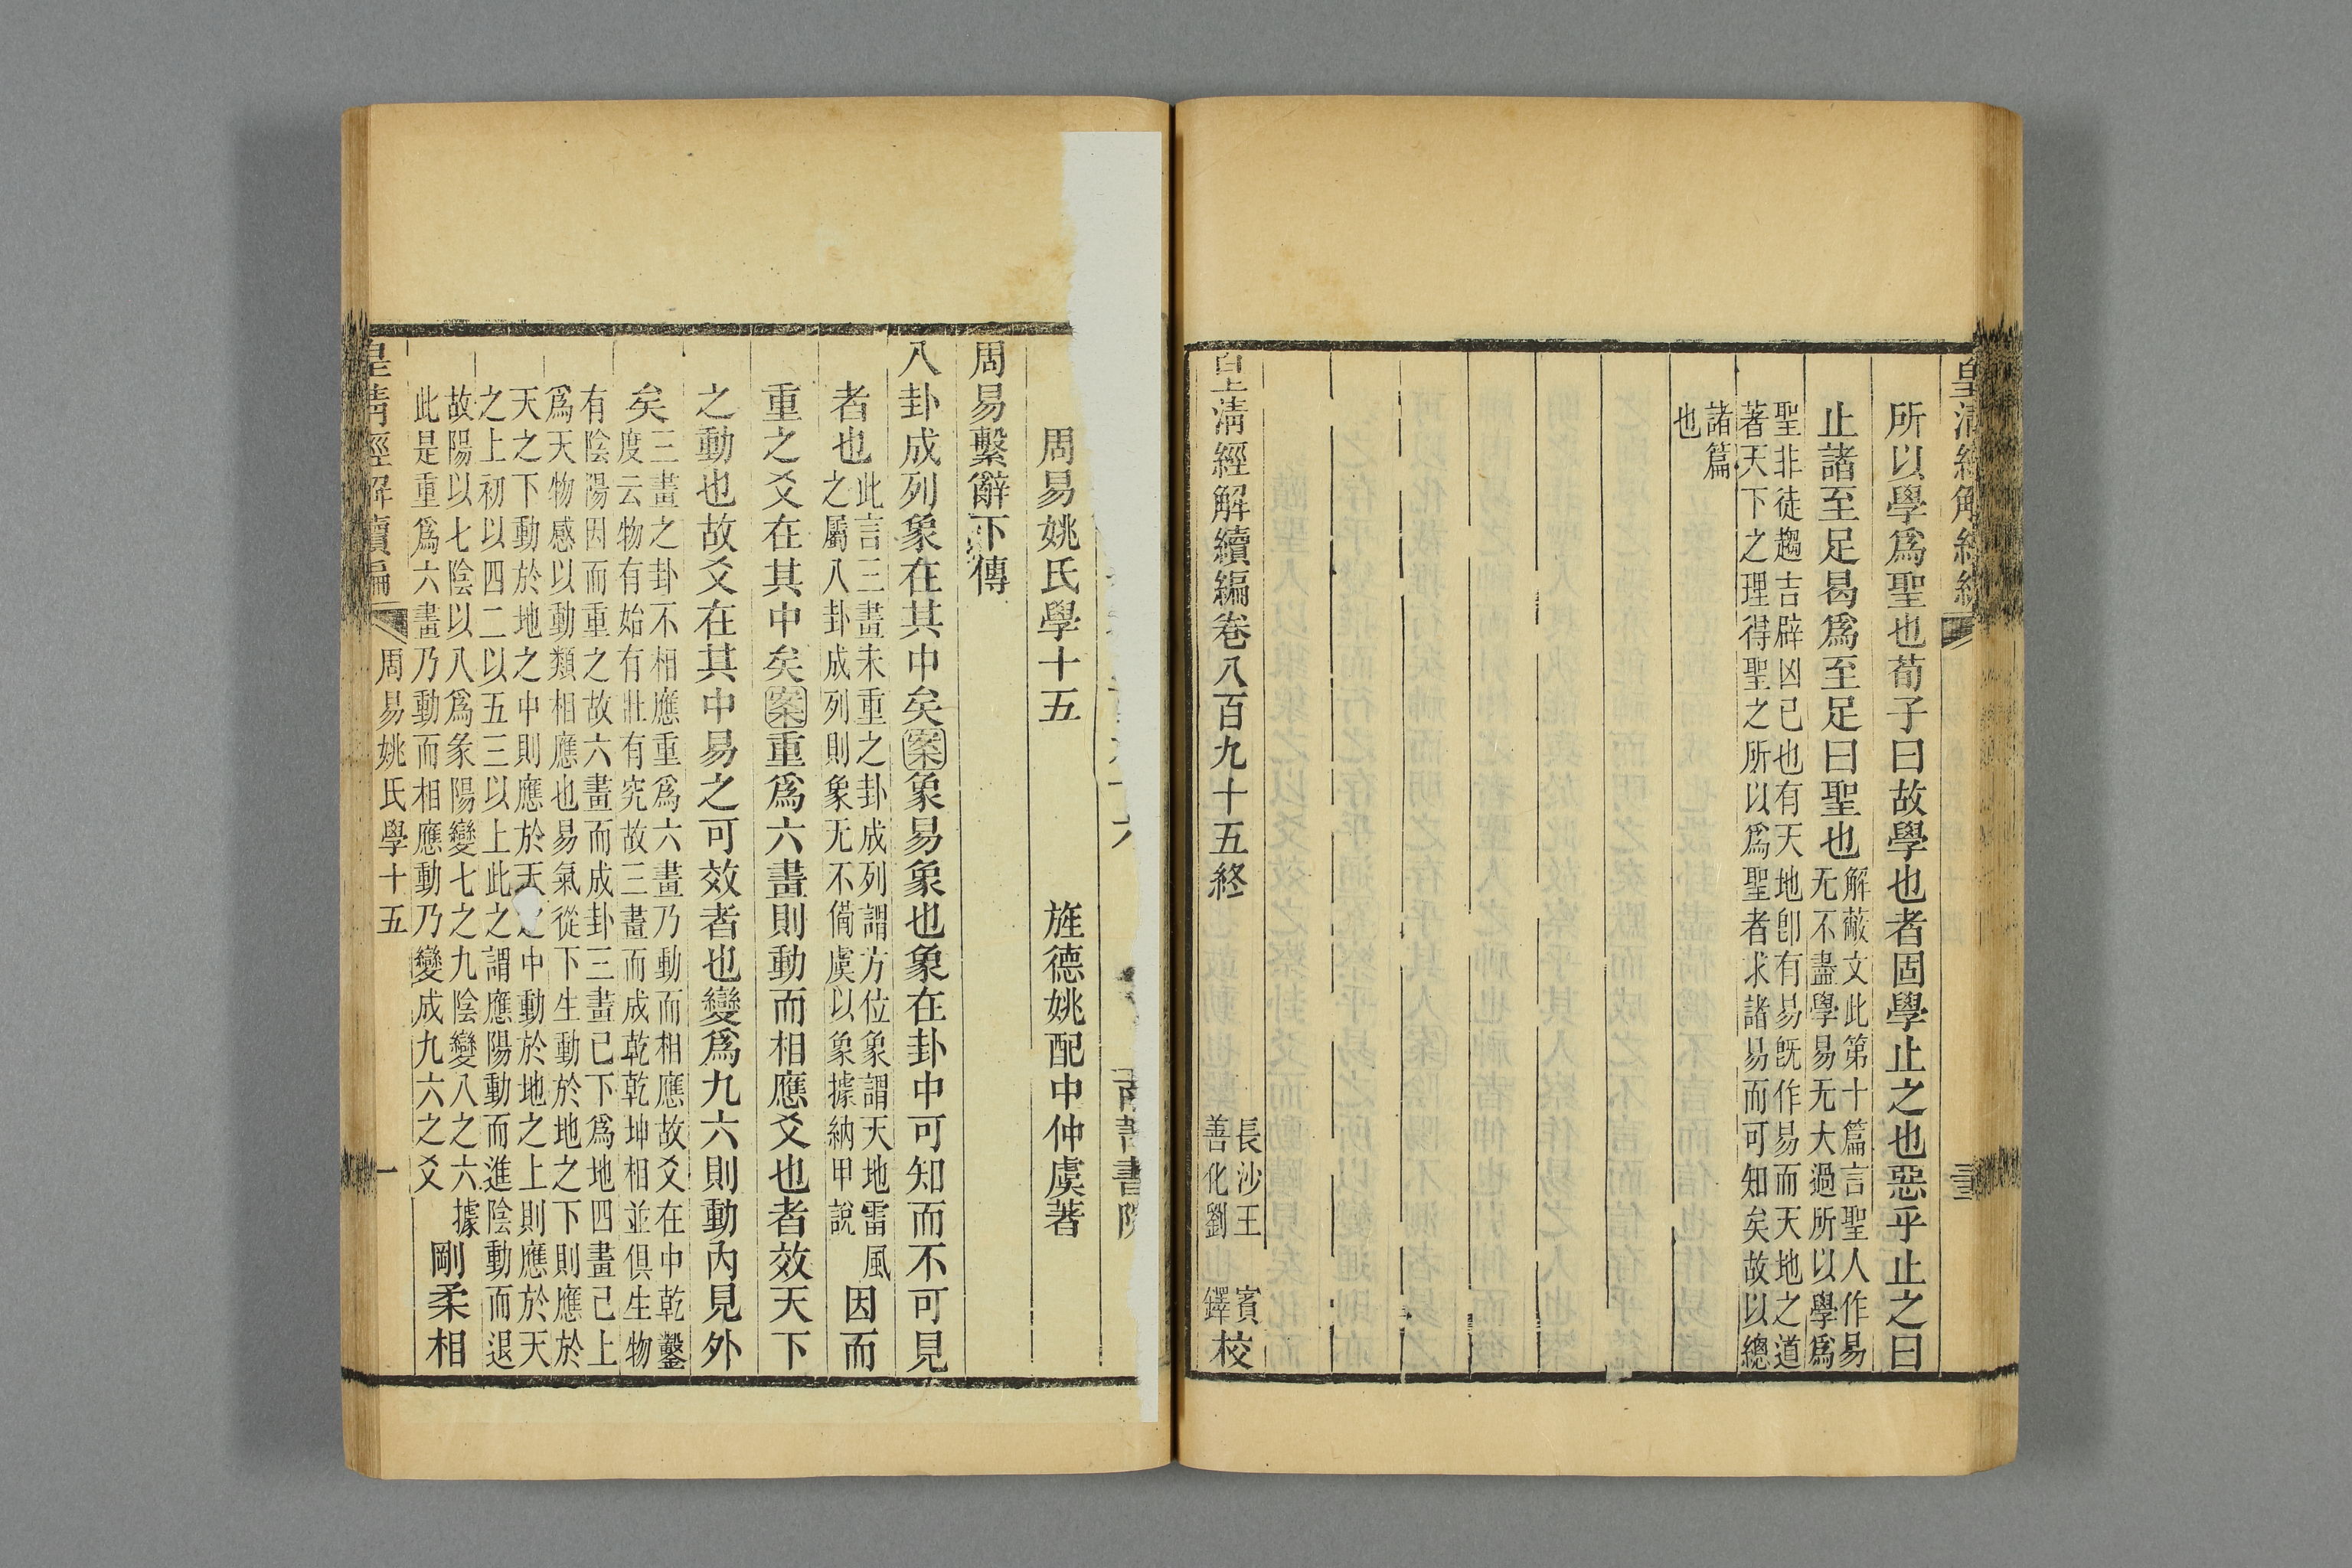 所以學爲聖也荀子曰故學也者固學止之也惡乎止之曰
止諸至足曷爲至足曰聖也
解蔽文此第十篇言聖人作易
无不盡學易无大過所以學爲
聖非徒趨吉辟凶已也有天地卽有易旣作易而天地之道
著天下之理得聖之所以爲聖者求諸易而可知矣故以總
諸篇
也
皇清經解續編卷八百九十五終
長沙王 賓
善化劉 鐸
校
南菁書院
周易姚氏學十五 旌德姚配中仲虞著
周易繫辭下傳
八卦成列象在其中矣案象易象也象在卦中可知而不可見
者也
此言三畫未重之卦成列謂方位象謂天地雷風
之屬八卦成列則象无不備虞以象據納甲說
因而
重之爻在其中矣案重爲六畫則動而相應爻也者效天下
之動也故爻在其中易之可效者也變爲九六則動內見外
矣
三畫之卦不相應重爲六畫乃動而相應故爻在中乾鑿
度云物有始有壯有究故三畫而成乾乾坤相並俱生物
有陰陽因而重之故六畫而成卦三畫已下爲地四畫已上
爲天物感以動類相應也易氣從下生動於地之下則應於
天之下動於地之中則應於天之中動於地之上則應於天
之上初以四二以五三以上此之謂應陽動而進陰動而退
故陽以七陰以八爲彖陽變七之九陰變八之六據
此是重爲六畫乃動而相應動乃變成九六之爻
剛柔相
皇清經解續編
周易姚氏學十五
一